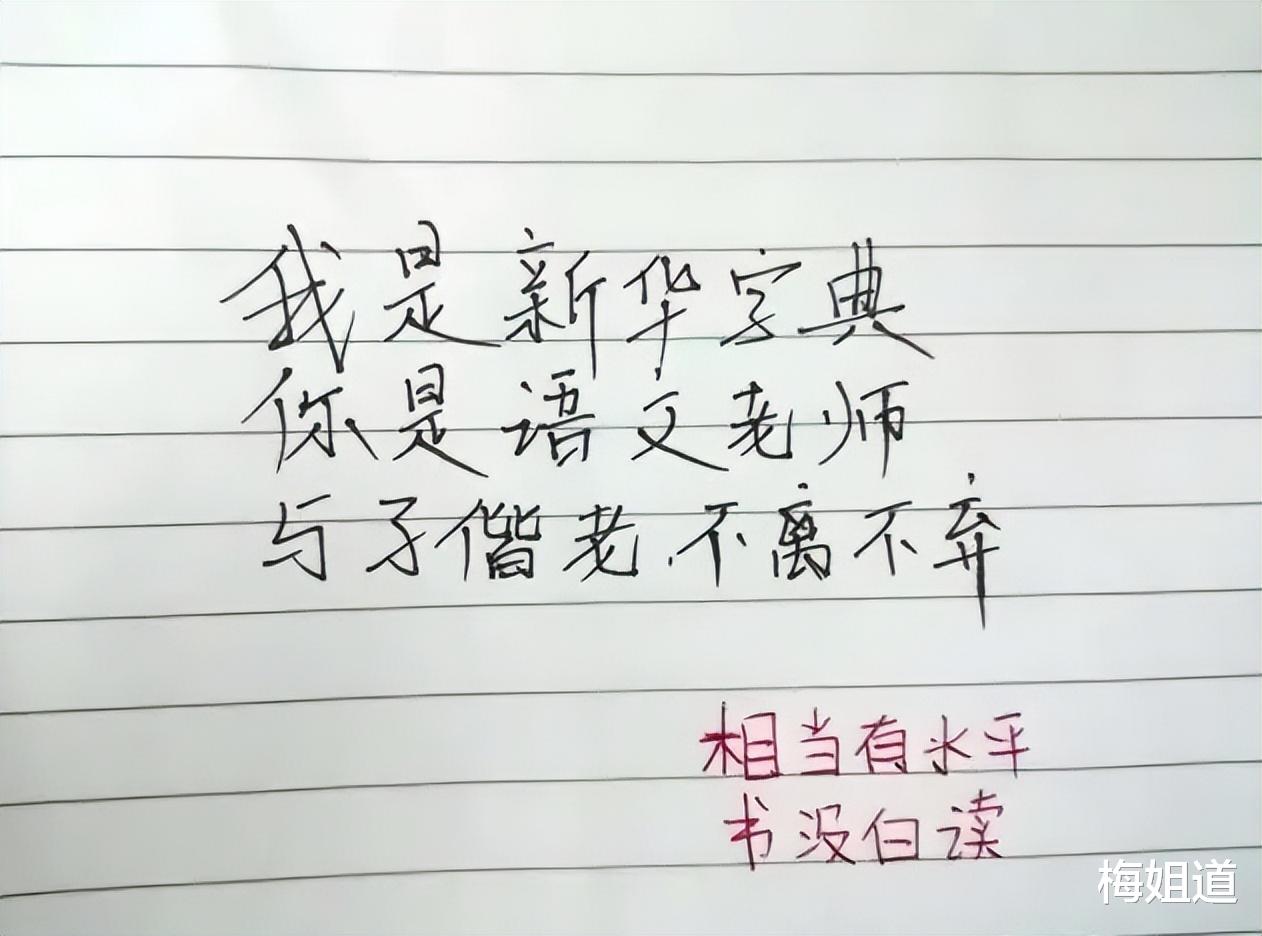 我是新华字典
你是语文老师
与子偕老.不离不弃
相当有水平
书没白读
梅姐道